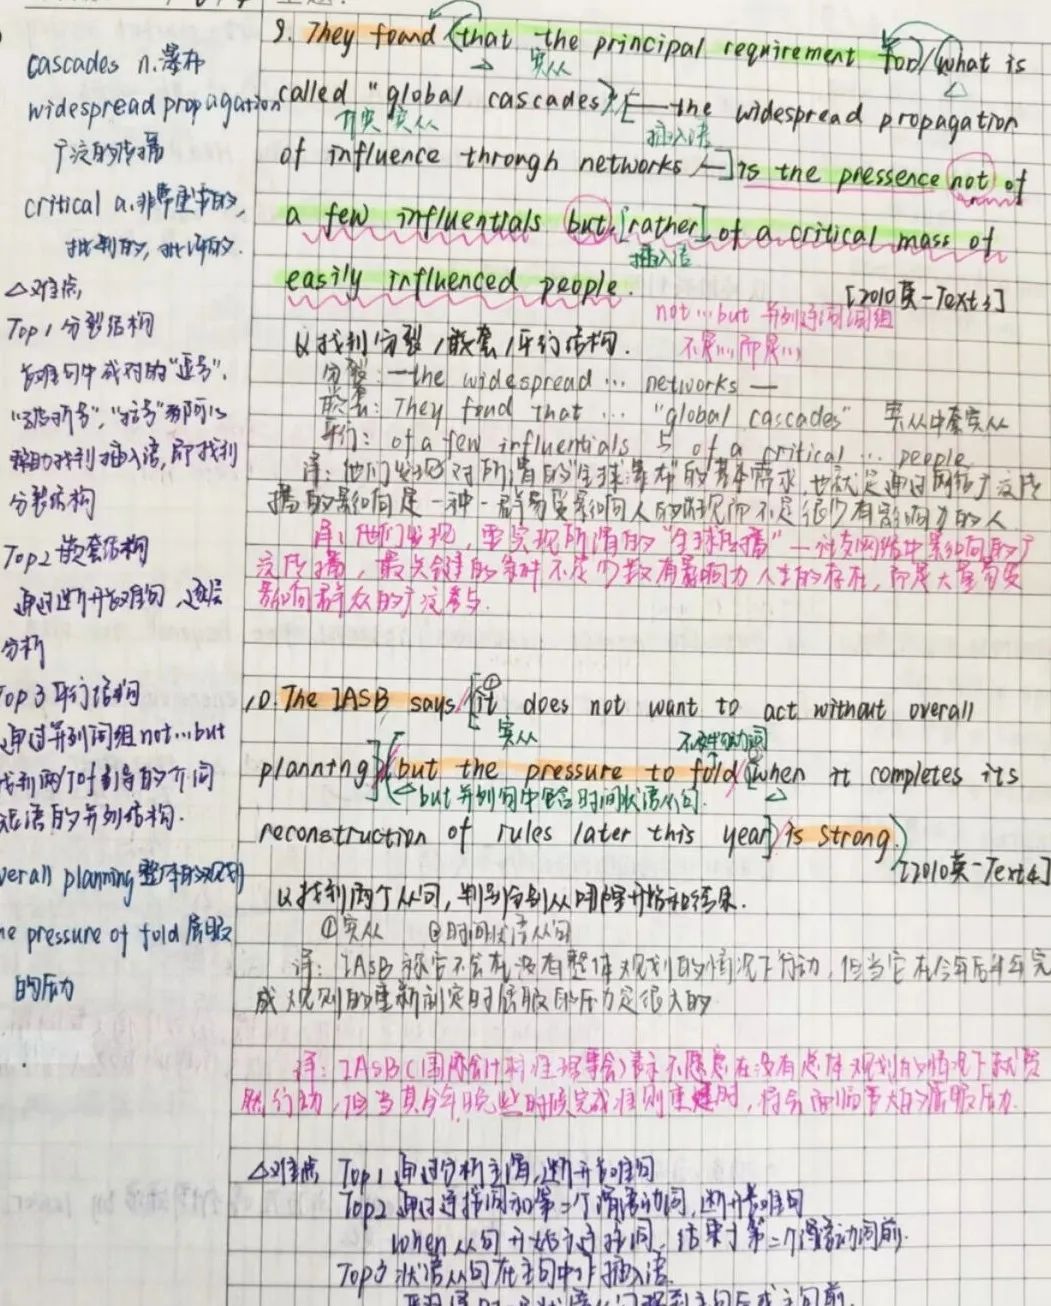 cascades n.瀑布
widespread propagation
广泛的传播
critical a.非常重要的,
批判的,批评的.
△难点
Top1 分裂结构
长难句中成对的"逗号".
"破折号","括号"都可以
帮助找到插入语,即找到
分裂结构
Top2 嵌套结构
通过断开长难句,逐层
分析
Top3 平行结构
通过并列词组not...but
找到两个of引导的介词
短语的并列结构.
overall planning 整体的规划
the pressure of fold 屈服
的压力
9. They found (that the principal requirement for/what is
实从
called "global cascades)/[—the widespread propagation
介宾 宾从
插入语
of influence through networks—] is the pressence not of
a few influentials but [rather] of a critical mass of
插入语
easily influenced people.
[2010英-Text3]
not...but 并列连词词组
不是...而是...
以找到分裂/嵌套/平行结构.
分裂:—the widespread ... networks—
嵌套: They fond that ... "global cascades" 宾从中套宾从
平行: of a few influentials 与 of a critical ... people
译:他们发现对所谓的"全球瀑布"的基本需求,也就是通过网络广泛传
播的影响是一种一群易受影响人的出现而不是很少有影响力的人
译:他们发现,要实现所谓的"全球传播"—社交网络中影响的广
泛传播,最关键的条件不是少数有影响力人士的存在,而是大量易受
影响群众的广泛参与.
10. The IASB says/[it does not want to act without overall
①
宾从
不定式动词
planning](but the pressure to fold/[when it completes its
but并列句中包含时间状语从句.
reconstruction of rules later this year]/is strong.)
[2010英-Text4]
以找到两个从句,判别分别从哪里开始和结束.
①宾从 ②时间状语从句
译: IASB称它不会在没有整体规划的情况下行动,但当它在今年后半年完
成规则的重新制定时屈服的压力是很大的
译: IASB(国际会计准则理事会)表示不愿意在没有总体规划的情况下就贸
然行动,但当其今年晚些时候完成准则重建时,将会面临重大的屈服压力.
△难点 Top1 通过分析主谓,断开长难句
Top2 通过连接词和第二个谓语动词,断开长难句
when从句 开始于连接词,结束于第二个谓语动词前.
Top3 状语从句在主句中作插入语.